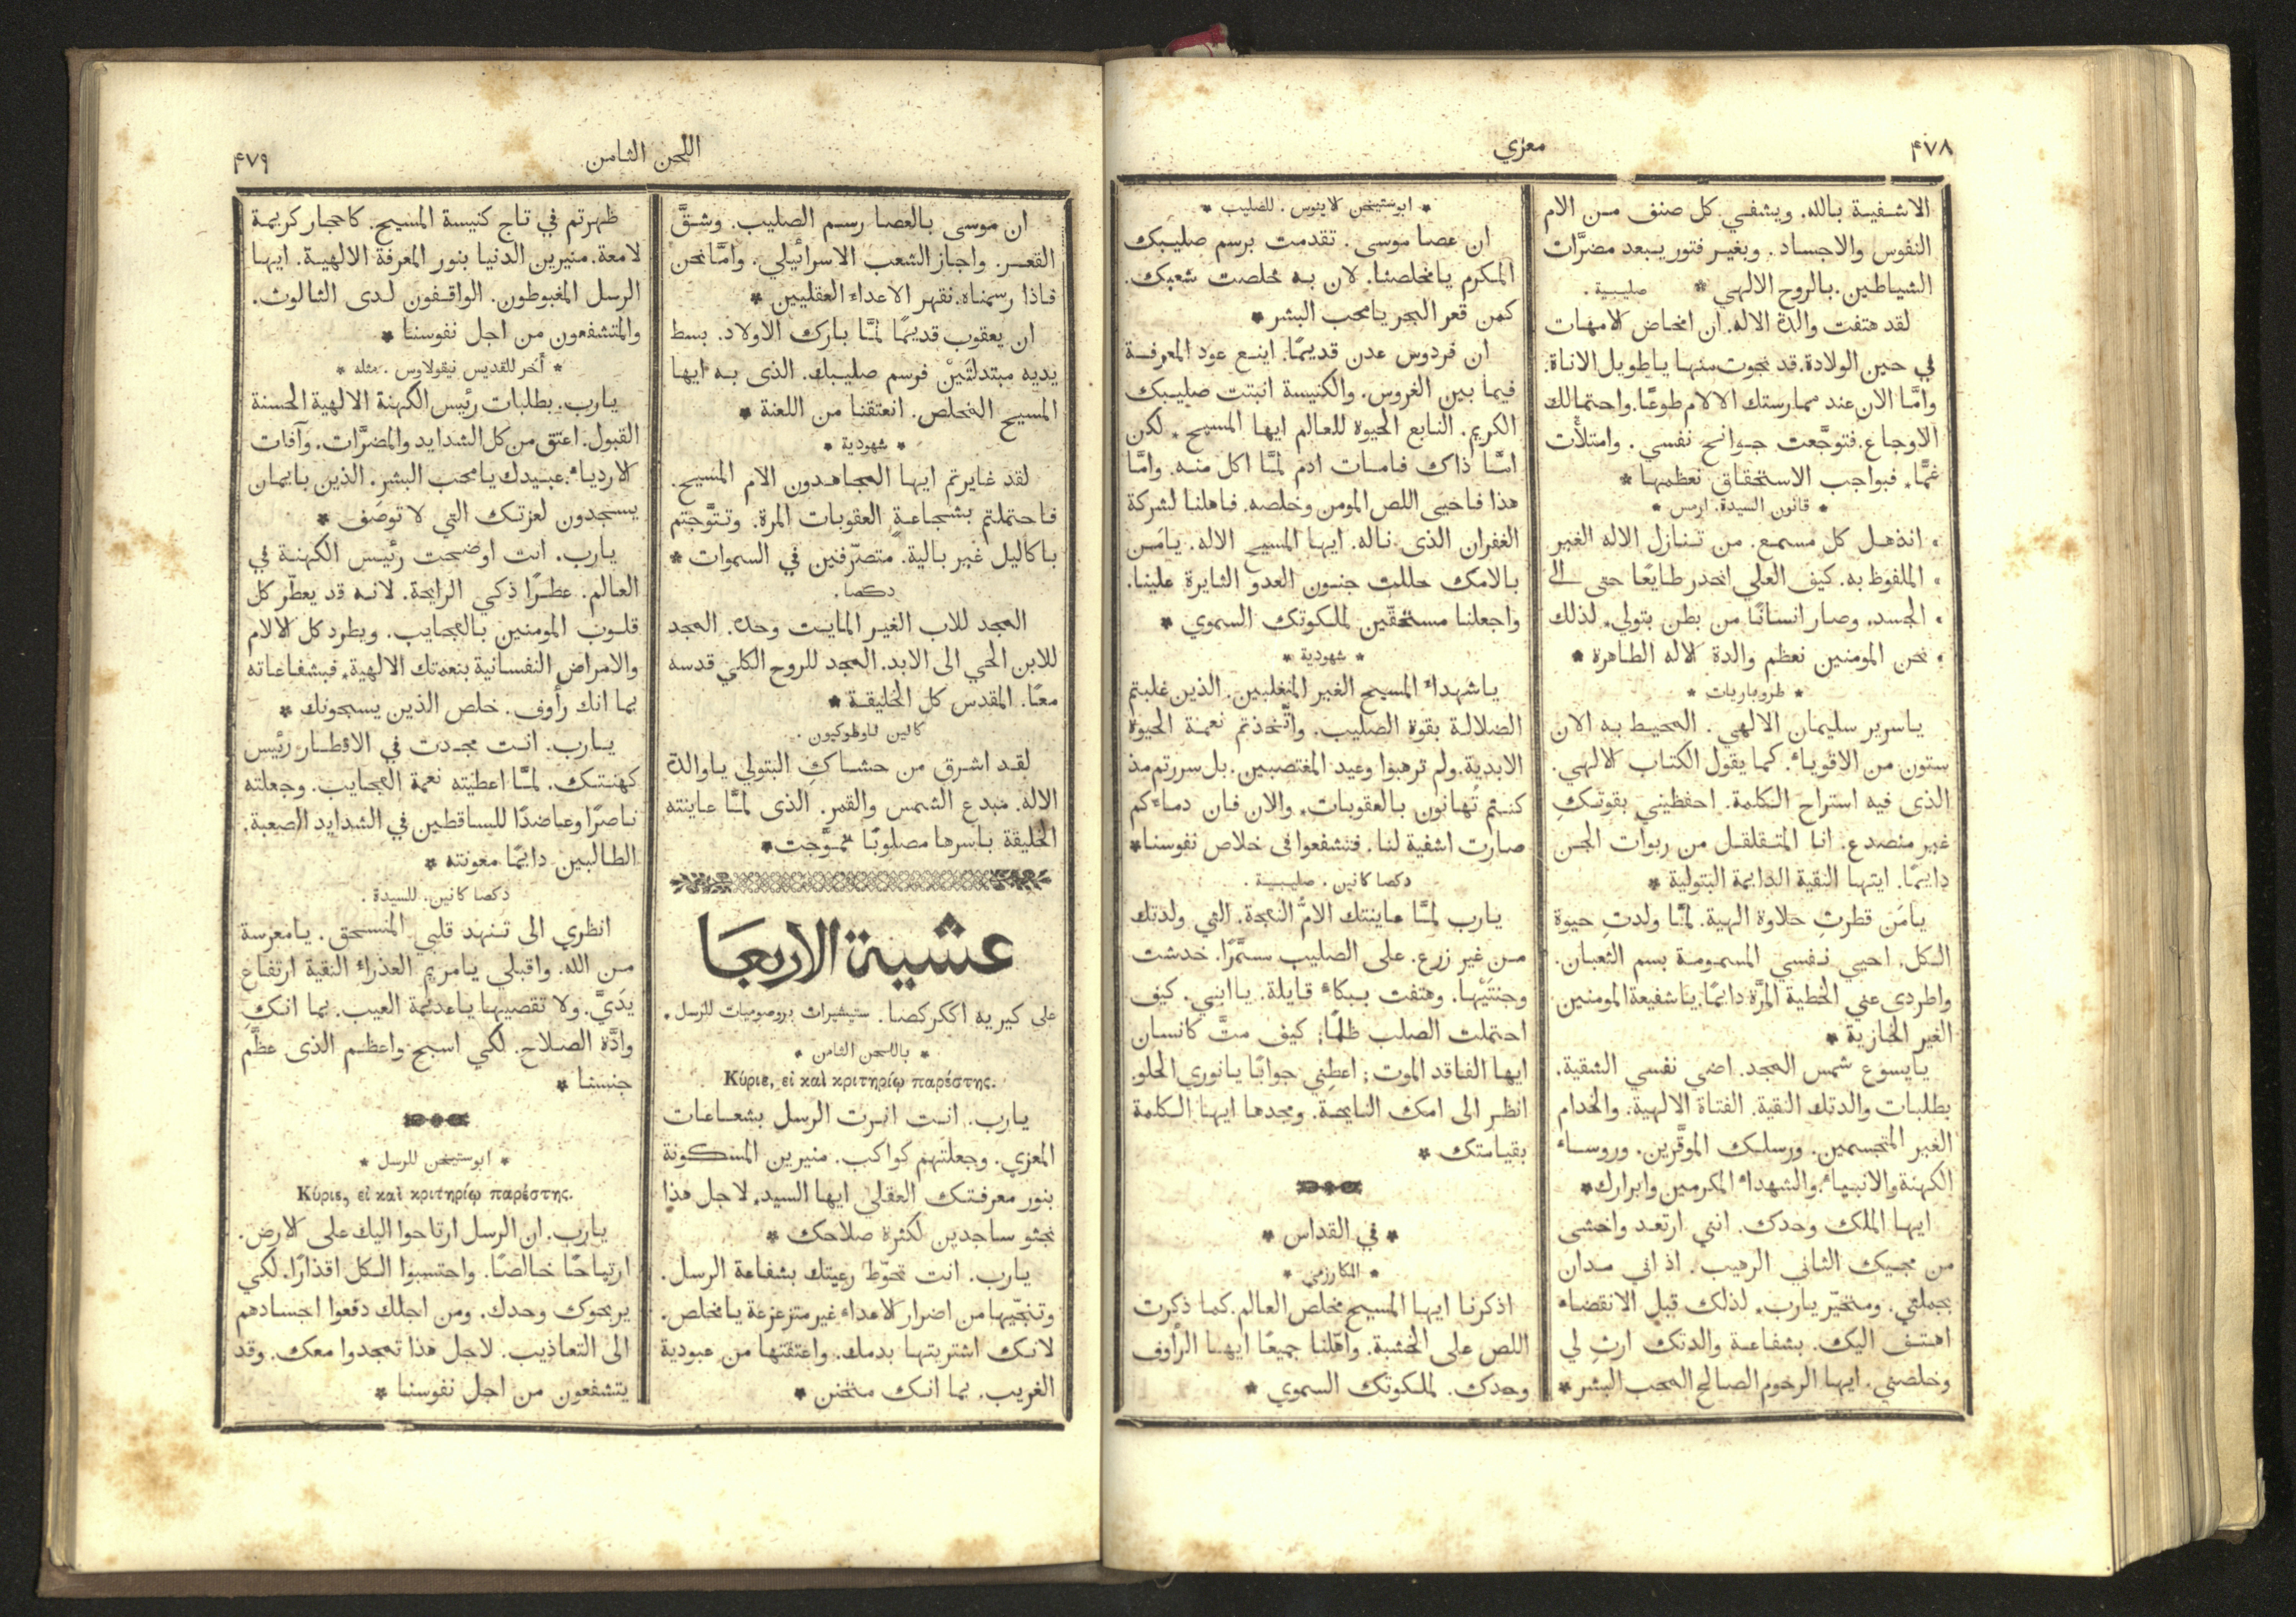 ٤٧٨
معزي
الاشفية بالله. ويشفي كل صنف من الام
النفوس والاجساد. وبغير فتور يبعد مضرَّات
الشياطين. بالروح الالهي * صليبية.
لقد هتفت والدة الاله. ان امخاض الامهات
في حين الولادة. قد نجوت منها يا طويل الاناة.
وامَّا الان عند ممارستك الالام طوعًا. واحتمالك
الاوجاع. فتوجَّعت جوانح نفسي. وامتلأت
غمًّا. فبواجب الاستحقاق نعظمها *
* قانون السيدة. ارمس *
• انذهل كل مسمع. من تنازل الاله الغير
• الملفوظ به. كيف العلي انحدر طايعًا حتى الى
• الجسد. وصار انسانًا من بطن بتولي. لذلك
• نحن المومنين نعظم والدة الاله الطاهرة *
* طروباريات *
ياسرير سليمان الالهي. المحيط به الان
ستون من الاقوياء. كما يقول الكتاب الالهي.
الذى فيه استراح الكلمة. احفظيني بقوتكِ
غير منصدع. انا المتقلقل من ربوات الجن
دايمًا. ايتها النقية الدايمة البتولية *
يامَن قطرتِ حلاوة الهية. لمَّا ولدتِ حيوة
الكل. احيي نفسي المسمومة بسم الثعبان.
واطردى عني الخطية المرَّة دايمًا. يا شفيعة المومنين
الغير الخازية *
يايسوع شمس المجد. اضي نفسي الشقية.
بطلبات والدتك النقية. الفتاة الالهية. والخدام
الغير المتجسمين. ورسلك الموقَّرين. وروساء
الكهنة والانبياء. والشهداء المكرمين وابرارك *
ايها الملك وحدك. انني ارتعد واخشى
من مجيك الثاني الرهيب. اذ اني مدان
بجملتي. ومتحيّر يارب. لذلك قبل الانقضاء
اهتف اليك. بشفاعة والدتك ارثِ لي
وخلصني. ايها الرحوم الصالح المحب البشر *
* ابوستيخن لاينوس. للصليب *
ان عصا موسى. تقدمت برسم صليبك
المكرم يا مخلصنا. لان به خلصت شعبك.
كمن قعر البحر يا محب البشر *
ان فردوس عدن قديمًا. اينع عود المعرفة
فيما بين الغروس. والكنيسة انبتت صليبك
الكريم. النابع الحيوة للعالم ايها المسيح. لكن
امَّا ذاك فامات ادم لمَّا اكل منه. وامَّا
هذا فاحيى اللص المومن وخلصه. فاهلنا لشركة
الغفران الذى ناله. ايها المسيح الاله. يامَن
بالامك حللت جنون العدو الثايرة علينا.
واجعلنا مستحقّين لملكوتك السموي *
* شهودية *
ياشهداء المسيح الغير المنغلبين. الذين غلبتم
الضلالة بقوة الصليب. واتَّخذتم نعمة الحيوة
الابدية. ولم ترهبوا وعيد المغتصبين. بل سررتم مذ
كنتم تُهانون بالعقوبات. والان فان دماءكم
صارت اشفية لنا. فتشفعوا في خلاص نفوسنا *
دكصا كانين. صليبية.
يارب لمَّا عاينتك الامُّ النعجة. التي ولدتك
من غير زرع. على الصليب مسمَّرًا. خدشت
وجنتَيْها. وهتفت ببكاء قايلة. يا ابني. كيف
احتملت الصلب ظلمًا: كيف متَّ كانسان
ايها الفاقد الموت: اعطِني جوابًا يا نوري الحلو.
انظر الى امك النايحة. ومجدها ايها الكلمة
بقيامتك *
* في القداس *
* المكارزمي *
اذكرنا ايها المسيح مخلص العالم. كما ذكرت
اللص على الخشبة. واهّلنا جميعًا ايها الرأوف
وحدك. لملكوتك السموي *
اللحن الثامن
٤٧٩
ان موسى بالعصا رسم الصليب. وشقَّ
القعر. واجاز الشعب الاسرائيلي. وامَّا نحن
فاذا رسمناه. نقهر الاعداء العقليين *
ان يعقوب قديمًا لمَّا بارك الاولاد. بسط
يديه مبتدلتَيْن فرسم صليبك. الذى به ايها
المسيح المخلص. انعتقنا من اللعنة *
* شهودية *
لقد غايرتم ايها المجاهدون الام المسيح.
فاحتملتم بشجاعةٍ العقوبات المرة. وتتوَّجتم
باكاليل غير بالية. متصرّفين في السموات *
دكصا.
المجد للاب الغير المايت وحده. المجد
للابن الحي الى الابد. المجد للروح الكلي قدسه
معًا. المقدس كل الخليقة *
كانين ثاوطوكيون.
لقد اشرق من حشاكِ البتولي ياوالدة
الاله. مبدع الشمس والقمر. الذى لمَّا عاينته
الخليقة باسرها مصلوبًا تموَّجت *
عشية الاربعا
على كيريه اككركصا. ستيشيرات بروصوميات للرسل.
* باللحن الثامن *
Κύριε, εἰ καὶ κριτηρίῳ παρέστης.
يارب. انت انرت الرسل بشعاعات
المعزي. وجعلتهم كواكب. منيرين المسكونة
بنور معرفتك العقلي ايها السيد. لاجل هذا
نجثو ساجدين لكثرة صلاحك *
يارب. انت تحوّط رعيتك بشفاعة الرسل.
وتنجّيها من اضرار الاعداء غير متزعزعة يا مخلص.
لانك اشتريتها بدمك. واعتقتها من عبودية
الغريب. بما انك متحنن *
ظهرتم في تاج كنيسة المسيح. كاحجار كريمة
لامعة. منيرين الدنيا بنور المعرفة الالهية. ايها
الرسل المغبوطون. الواقفون لدى الثالوث.
والمتشفعون من اجل نفوسنا *
* أُخر للقديس نيقولاوس. مثله *
يارب. بطلبات رئيس الكهنة الالهية الحسنة
القبول. اعتق من كل الشدايد والمضرَّات. وآفات
الاردياء. عبيدك يا محب البشر. الذين بايمان
يسجدون لعزتك التي لا توصَف *
يارب. انت اوضحت رئيس الكهنة في
العالم. عطرًا ذكي الرايحة. لانه قد يعطّر كل
قلوب المومنين بالعجايب. ويطرد كل الالام
والامراض النفسانية بنعمتك الالهية. فبشفاعاته
بما انك رأوف. خلص الذين يسبحونك *
يارب. انت مجدت في الاقطار رئيس
كهنتك. لمَّا اعطيته نعمة العجايب. وجعلته
ناصرًا وعاضدًا للساقطين في الشدايد الصعبة.
الطالبين دايمًا معونته *
دكصا كانين. للسيدة.
انظري الى تنهد قلبي المنسحق. يا معرسة
من الله. واقبلي يا مريم العذراء النقية ارتفاع
يدَيَّ. ولا تقصيها يا عديمة العيب. بما انكِ
وادَّة الصلاح. لكي اسبح واعظم الذى عظَّم
جنسنا *
* ابوستيخن للرسل *
Κύριε, εἰ καὶ κριτηρίῳ παρέστης.
يارب. ان الرسل ارتاحوا اليك على الارض.
ارتياحًا خالصًا. واحتسبوا الكل اقذارًا. لكي
يربحوك وحدك. ومن اجلك دفعوا اجسادهم
الى التعاذيب. لاجل هذا تمجدوا معك. وقد
يتشفعون من اجل نفوسنا *